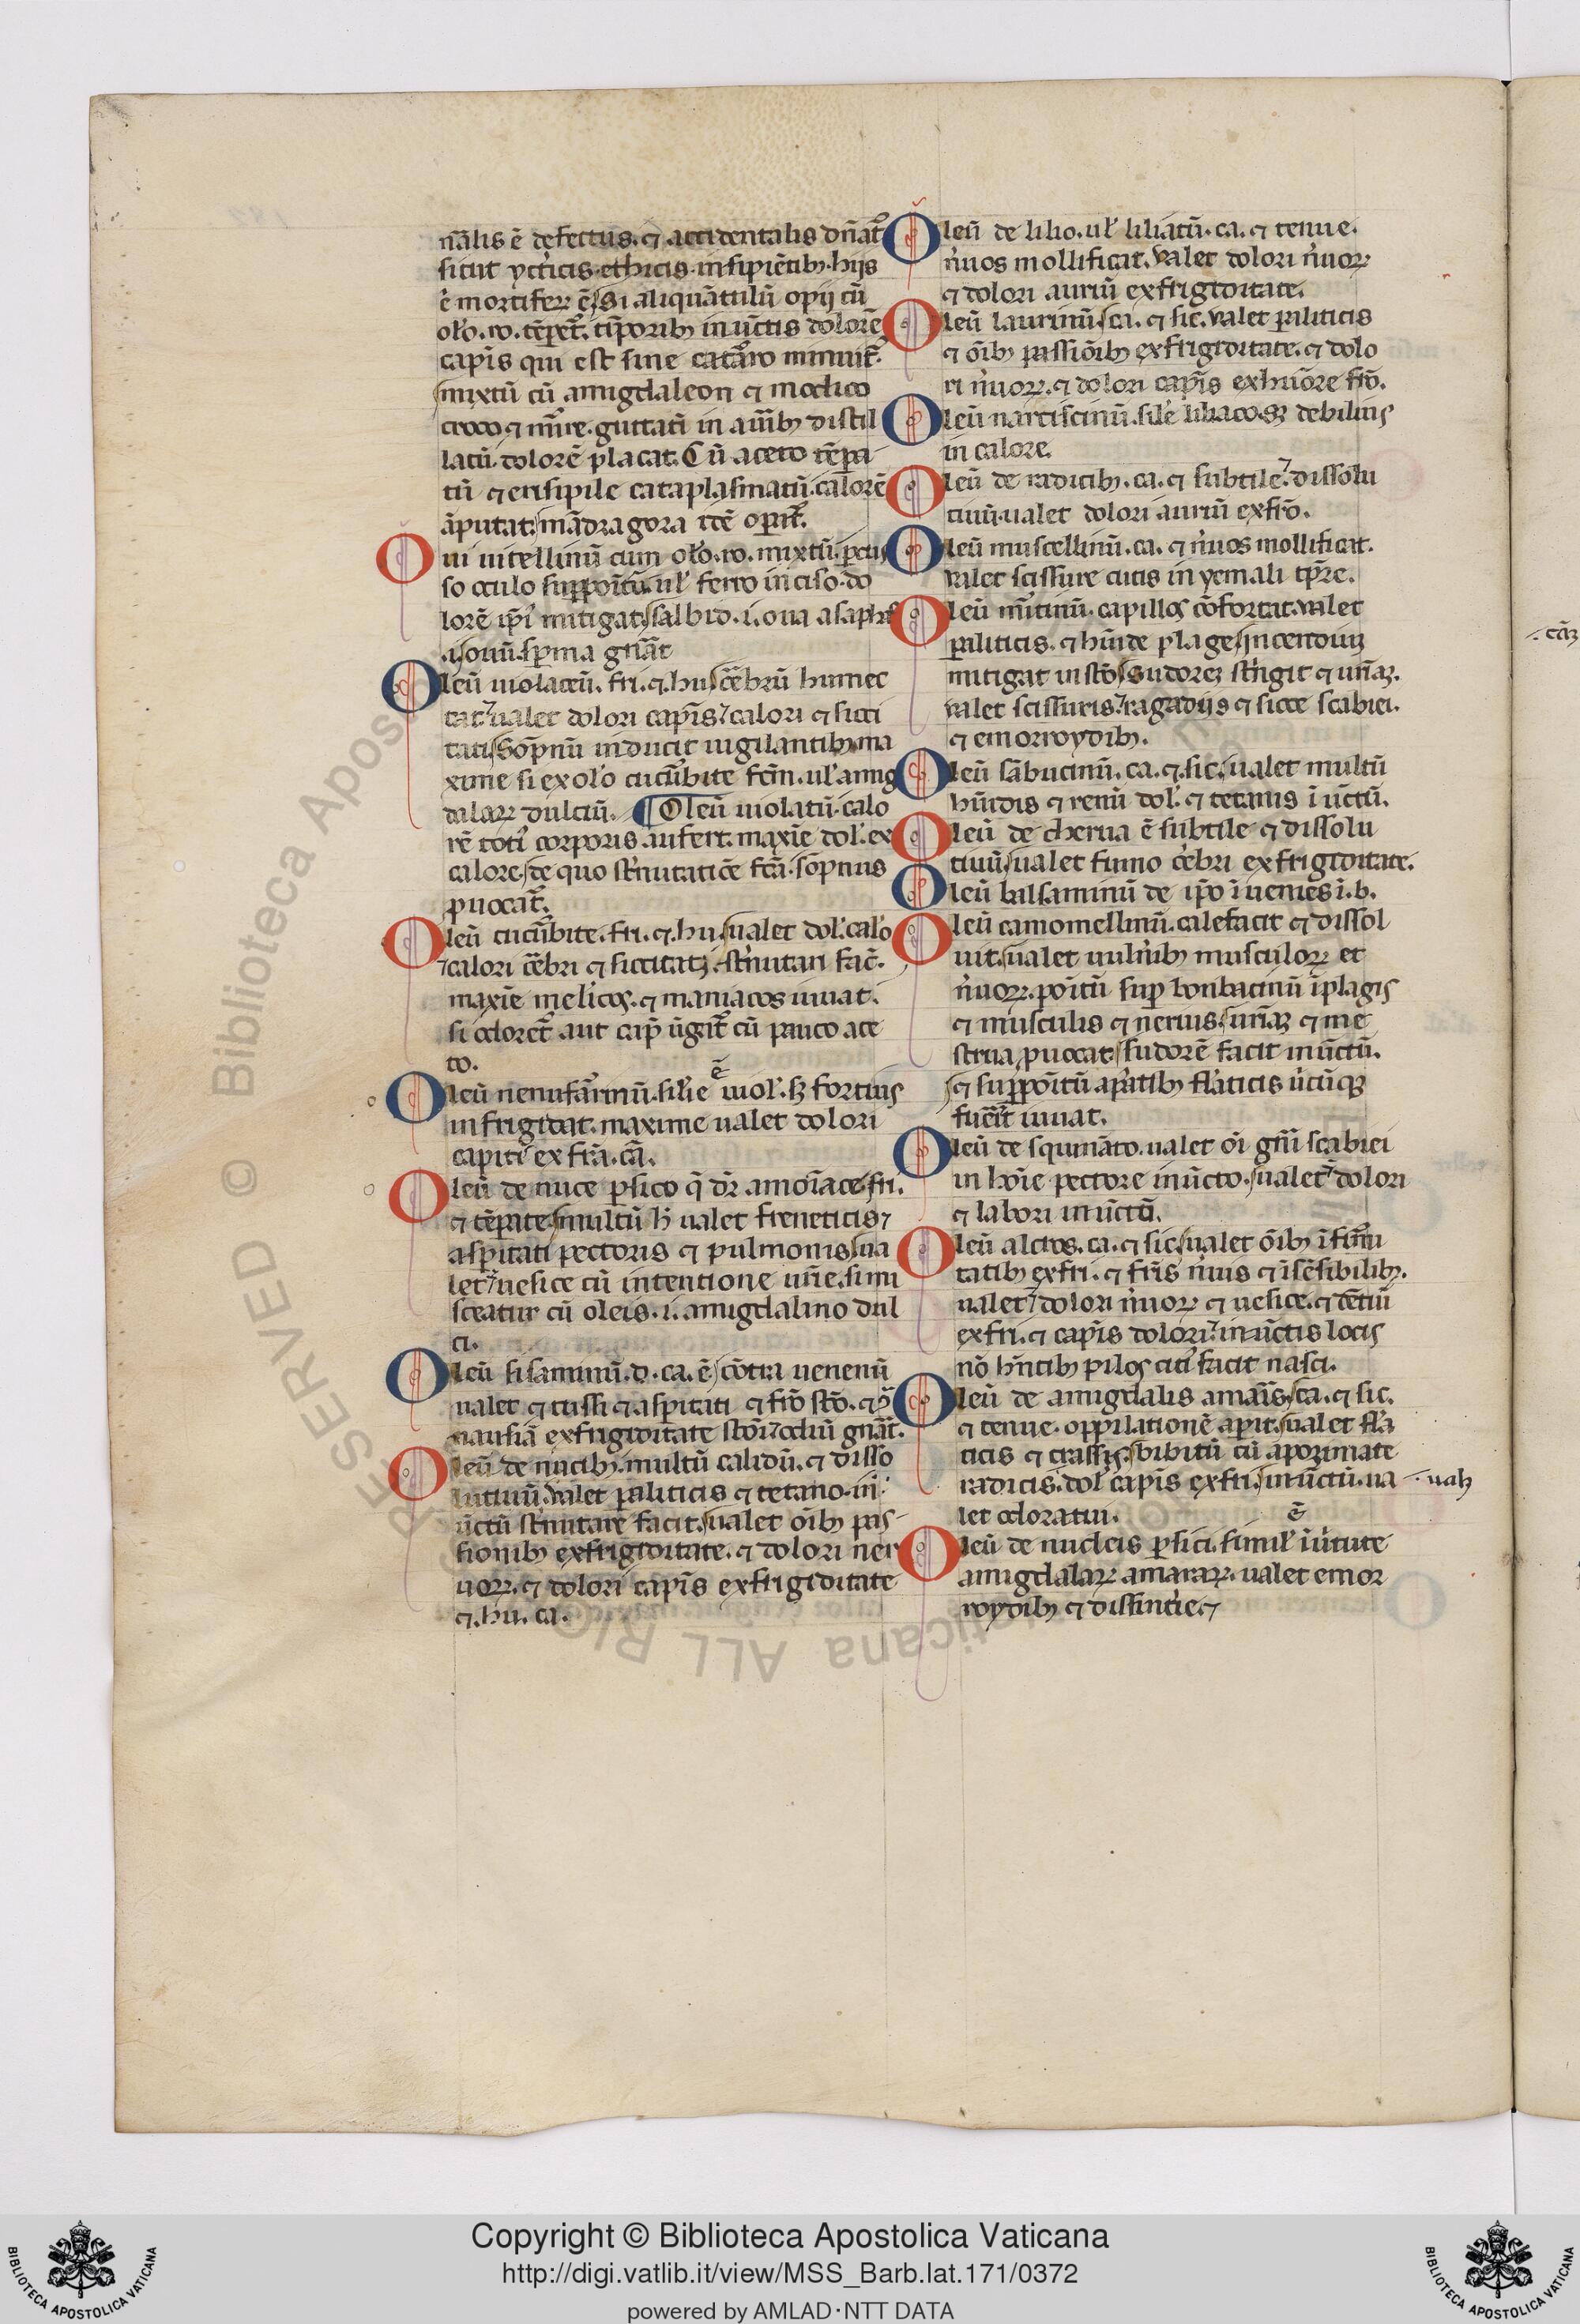 nālis ē defectus. ⁊ accidentalis dn̄at᷒
sicut ycticis ethicis insipiētib᷒ hijs
ē mortiferꝝ ē. Si aliquātulū opij cū
ol'o. ro. tēperet᷒. tīporib᷒ inūctis dolorē
capīs qui est sine catarro minuit᷒.
mixtū cū amigdaleon ⁊ modico
croco ⁊ mirre. guttatī in aurib᷒ distil
latū. dolorē placat. Cū aceto tēpa
tū ⁊ erisipile cataplasmatū. calorē
āputat. mādragora idē opat᷒.
Oui uitellinū cum ol'o. ro. mixtū. pcus
so oculo supp̄oitū. ul' ferro inciso. do
lorē ip̄i mitigat. salbid. i. oua
.i. ouū. sperma gn̄āt
Oleū uiolaceū. fri. ⁊. hu. cēbrū humec
tat. ualet dolori capīs. calori ⁊ sicci
tati. Sōpnū inducit uigilantib᷒. ma
xime si ex ol'o cucūbite fcm̄. ul' amig
dalaꝝ dulciū. ¶ Oleū uiolatū. calo
rē toti᷒ corporis aufert. maxīe dol'. ex
calore. de quo st'nutatiōe fcā. sōpnus
ꝓuocat᷒.
Oleū cucūbite. fri. ⁊. hu. ualet dol'. cal'o
calori cēbri ⁊ siccitati. st'nutari fac̄.
maxīe melīcos. ⁊ maniacos iuuat.
si odoret᷒ aut cap̄ ūgat᷒ cū pauco ace
to.
Oleū nenufarinū. sil'e ē uiol'. sꝫ fortius
infrigidat. maxime ualet dolori
capiti᷒ ex fra. cā.
Oleū de nuce psico q̄ dr̄ amoīace. fri.
⁊ tēpate. multū h̄ ualet freneticis ⁊
aspitati pectoris ⁊ pulmonis. ua
let uesice cū intentione urīe. sim
sceatur cū oleis. i. amigdalino dul
ci.
Oleū sisaminū. d. ca. ē. cōtra uenenū
ualet ⁊ tussi ⁊ aspitati ⁊ fr̄o sto. ⁊
nausiā ex frigiditate stoī. odiū gn̄āt.
Oleū de nucib᷒. multū calidū. ⁊ disso
lutiuū. Valet paliticis ⁊ tetano. in
ūctū st'nutare facit. ualet oīb᷒ pas
sionib᷒ ex frigiditate. ⁊ dolori ner
uoꝝ. ⁊ dolori capīs ex frigiditate
⁊. hu. ca.
Oleū de lilio. ul' liliatū. ca. ⁊ tenue.
n'uos mollificat. Valet dolori n'uoꝝ
⁊ dolori auriū ex frigiditate.
Oleū laurinū. ca. ⁊ sic. valet paliticis
⁊ oīb᷒ passiōib᷒ ex frigiditate. ⁊ dolo
ri n'uoꝝ. ⁊ dolori capīs ex huōre fr̄o.
Oleū narciscinū. sil'e liliaco. sꝫ debilius
in calore.
Oleū de radicib᷒. ca. ⁊ subtile. dissolu
tiuū. ualet dolori auriū ex fr̄o.
Oleū muscellinū. ca. ⁊ n'uos mollificat.
valet scissure cutis in yemali tp̄re.
Oleū mirtinū. capillos cōfortat. valet
paliticis. ⁊ hūide plage. incendiuꝫ
mitigat in sto. Sudoreꝫ st'ngit ⁊ urīaꝫ.
valet scissuris. ragadijs ⁊ sicce scabiei.
⁊ emorroydib᷒.
Oleū sābucinū. ca. ⁊. sic. ualet multū
hūidis ⁊ renū dol'. ⁊ tetanis ī ūctū.
Oleū de cherua ē subtile ⁊ dissolu
tiuū. ualet fumo cēbri ex frigiditate.
Oleū balsaminū de ip̄o īuenies ī. b.
Oleū camomellinū. calefacit ⁊ dissol
uit. ualet uuln'ib᷒ musculoꝝ et
n'uoꝝ. poitū sup bonbacinū ī plagis
⁊ musculis ⁊ neruis. urīaꝫ ⁊ me
strua ꝓuocat. sudorē facit inūctū.
⁊ supp̄oitū apatib᷒ fl'aticis ūcūqꝫ
fuēīt iuuat.
Oleū de squināto. ualet oī gn̄i scabiei
in hoīe pectore inūcto. ualet dolori
⁊ labori inūctū.
Oleū alcios. ca. ⁊ sic. ualet oīb᷒ īfirmi
tatib᷒ ex fri. ⁊ fris n'uis ⁊ īsēsibilib᷒.
ualet dolori n'uoꝝ ⁊ uesice. ⁊ dētiū
ex fri. ⁊ capīs dolori. inūctis locis
nō hn̄tib᷒ pilos citi᷒ facit nasci.
Oleū de amigdalis amaīs. ca. ⁊ sic.
⁊ tenue. oppilationē apit. ualet fl'a
ticis ⁊ crassis. bibitū cū apozimate
radicis. dol' capis ex fri. inūctū. ua
let odoratui.
Oleū de nucleis psici. simil' ē ī ūtute
amigdalaꝝ amaraꝝ. ualet emor
roydib᷒ ⁊ dissintie. ⁊
Copyright © Biblioteca Apostolica Vaticana
http://digi.vatlib.it/view/MSS_Barb.lat.171/0372
powered by AMLAD·NTT DATA